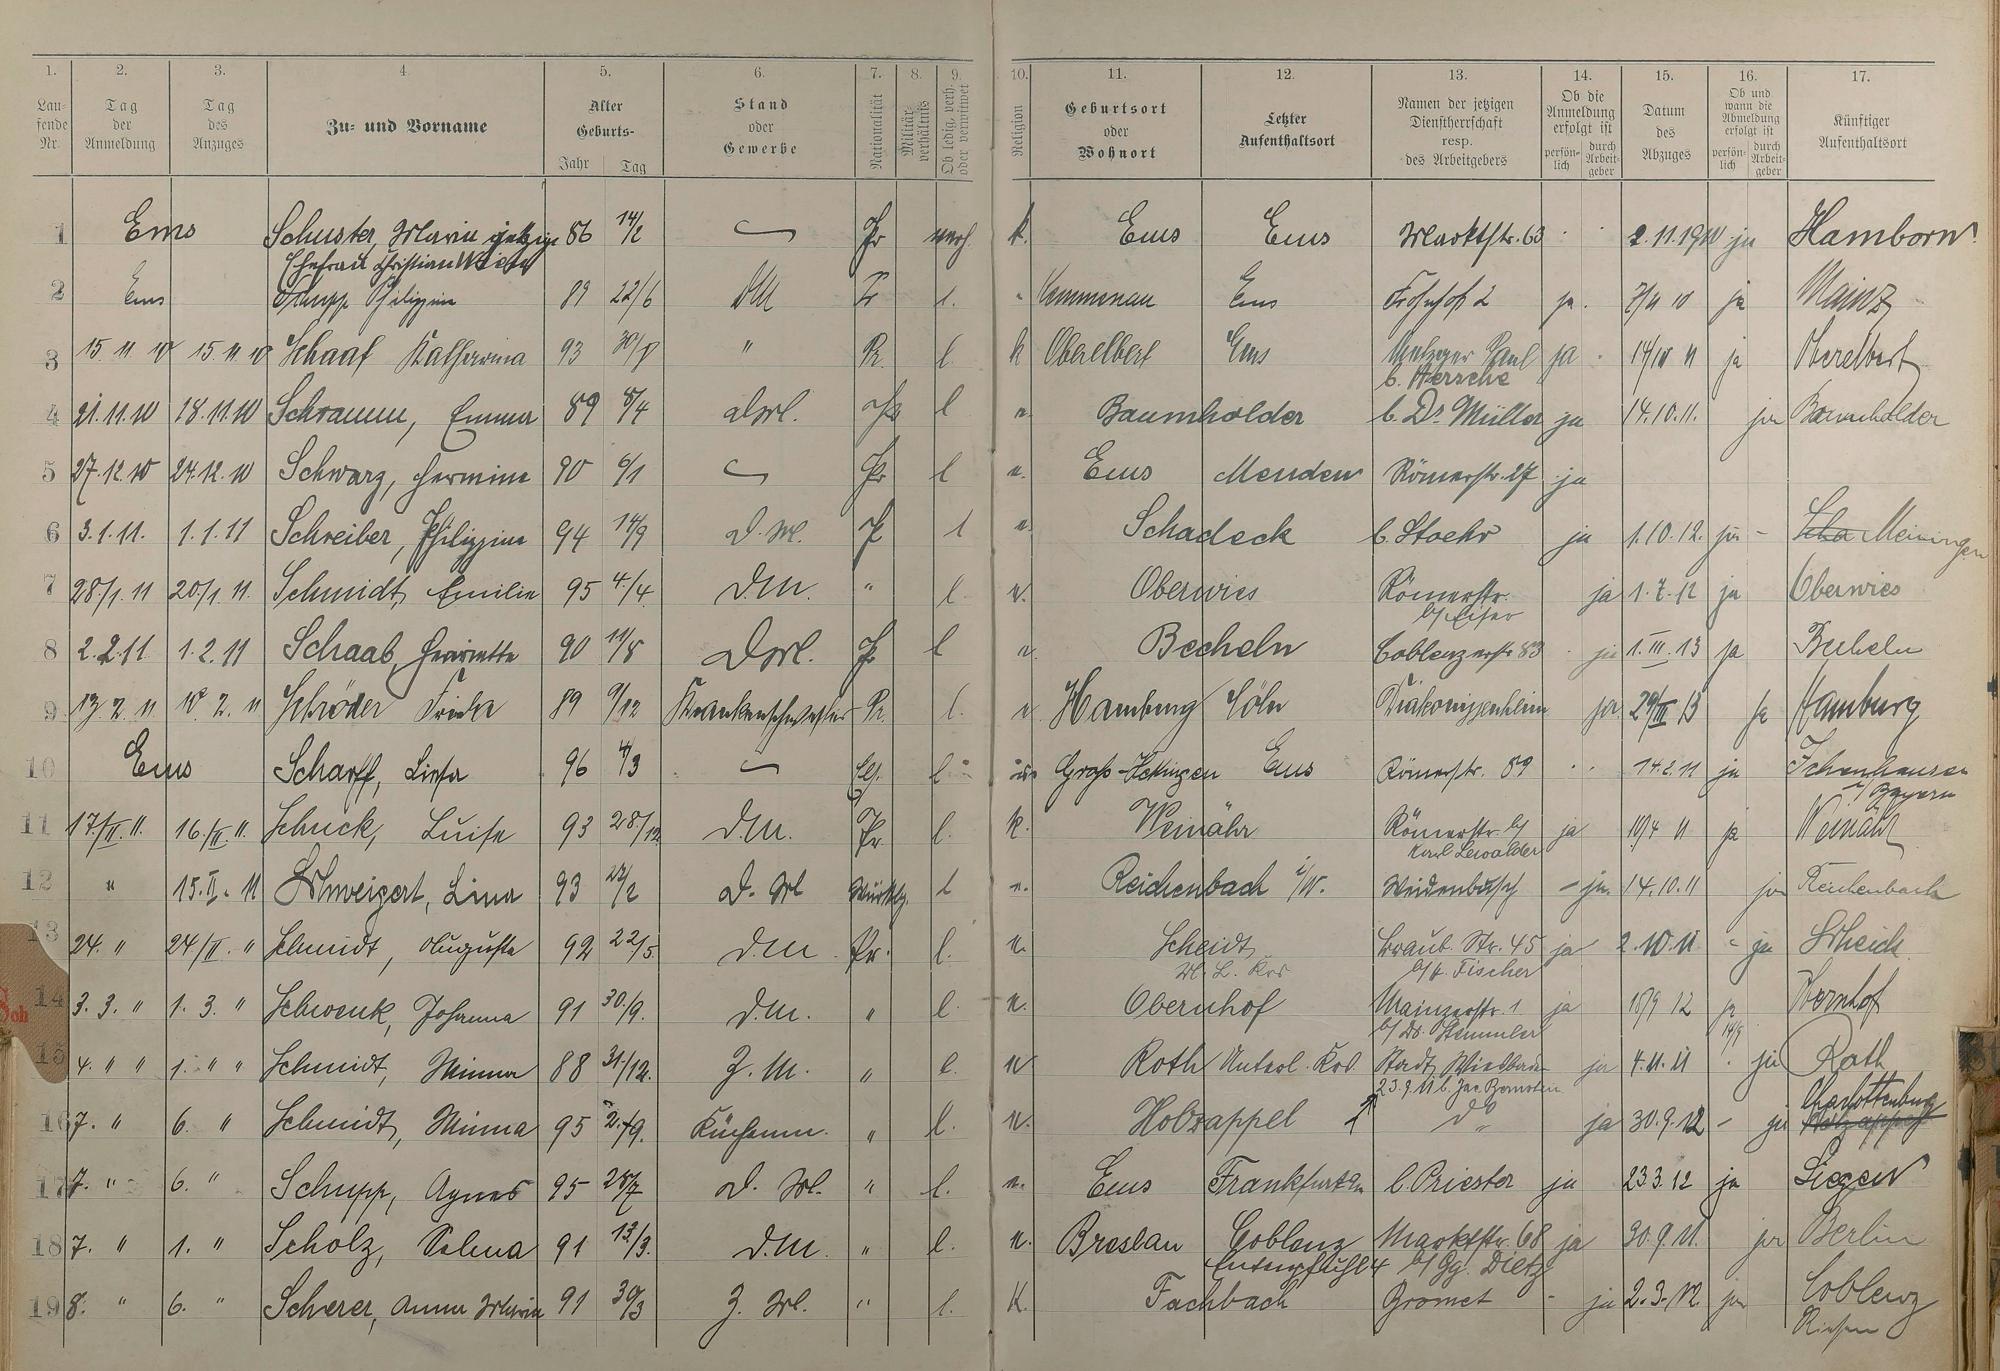 1. 2. 3. 4. 5. 6. 7. 8. 9. 10. 11. 12. 13. 14. 15. 16. 17.
Lau-
fende
Nr.
Tag
der
Anmeldung
Tag
des
Anzuges
Zu- und Vorname
Alter
Geburts-
Jahr Tag
Stand
oder
Gewerbe
Nationalität
Militär-
verhältnis
Ob ledig, verh.
oder verwitwet
Religion
Geburtsort
oder
Wohnort
Letzter
Aufenthaltsort
Namen der jetzigen
Dienstherrschaft
resp.
des Arbeitgebers
Ob die
Anmeldung
erfolgt ist
persön-
lich
durch
Arbeit-
geber
Datum
des
Abzuges
Ob und
wann die
Abmeldung
erfolgt ist
persön-
lich
durch
Arbeit-
geber
Künftiger
Aufenthaltsort
1 Ems Schuster, Maria jetzige 86 14/2 Pr verh. k. Ems Ems Marktstr. 63 2.11.1910 ja Hamborn
Ehefrau Christian
2 Ems Philippine 89 22/6 DM Pr l. Kemmenau Ems Frohnhof 2 ja. ja Mainz
3 15 11 10 15 11 10 Schaaf Katharina 93 " Pr. l. k Oberelbert Ems Metzger Paul ja 14/10 11 ja Oberelbert
b. Hersche
4 21.11.10 18.11.10 Schramm, Emma 89 8/4 l e. Baumholder b. Dr. Müller ja 14.10.11. ja Baumholder
5 27.12.10 24.12.10 Schwarz, Hermine 90 6/1 Pr l e. Ems Menden Römerstr. 27 ja
6 3.1.11. 1.1.11 Schreiber, Philippine 94 14/9 D. M. P l e. Schadeck b. Stoehr ja 1.10.12. ja - Scha Meiningen
7 28/1. 11 20/1. 11. Schmidt, Emilie 95 4./4. D.M. " l. e. Oberwies Römerstr. ja 1.7.12 ja Oberwies
8 2.2.11. 1.2.11 Schaab, Henriette 90 11/8 Pr l e. Becheln Coblenzerstr 83 ja 1.III.13 ja Becheln
9 13 2 11 10 2. 11 Schröder Frieda 89 9/12 Krankenschwester Pr. l. e. Hamburg Cöln Diakonissenheim ja 29/III 13 ja Hamburg
10 Ems Scharff, Liesa 96 4/3 l Ems Römerstr. 89 14.2.11 ja Ichenhausen
i/ Bayern
11 17./II. 11. 16./II. 11. Schuck, Luise 93 28/12. D.M. Pr. l. k. Weinähr Römerstr. b/ ja 10/4 11 ja Weinähr
Karl Lewalder
12 " 15.II. 11 Schweigert, Lina 93 22/2 D. M Württbg. l e. Reichenbach i/W. Weidenbusch - ja 14.10.11 ja Reichenbach
13 24. " 24/II. " Schmidt, Auguste 92 22/5. D.M. Pr. l. e. Scheidt Graub. Str. 45 ja 2.10.11. - ja Scheidt
b/H. Fischer
14 3. 3. " 1. 3. " Schwenk, Johanna 91 30./9. D.M. " l. e. Obernhof Mainzerstr. 1 ja 15/9 12 ja Obernhof
b/ Dr. Stemmler 14/9
15 4. " " 1. " " Schmidt, Minna 88 31./12. Z. M. " l. e Roth Unterl. Krs. Stadt Wiesbaden ja 4.11.11 ja Roth
23.9.11 b. Jac. Bernstein
16 7. " 6. " Schmidt, Minna 95 Küchenm. " l. e. Holzappel do ja 30.9.12 - ja Charlottenburg
Holzappel
17 7. " 6. " Schupp, Agnes 95 28/7 D. M. " l. e. Ems Frankfurt a/m b. Priester ja 23.3.12 ja Siegen
18 7. " 1. " Scholz, Selma 91 13./3. D.M. " l. e. Breslau Coblenz Marktstr. 68 ja 30.9.11. ja Berlin
Entenpfuhl 4 b/ Gg. Dietz
19 8. " 6. " Scherer, Anna Maria 91 30/3 Z. M. " l. K. Fachbach Gromet - ja 2.3./12. ja Coblenz
Sch